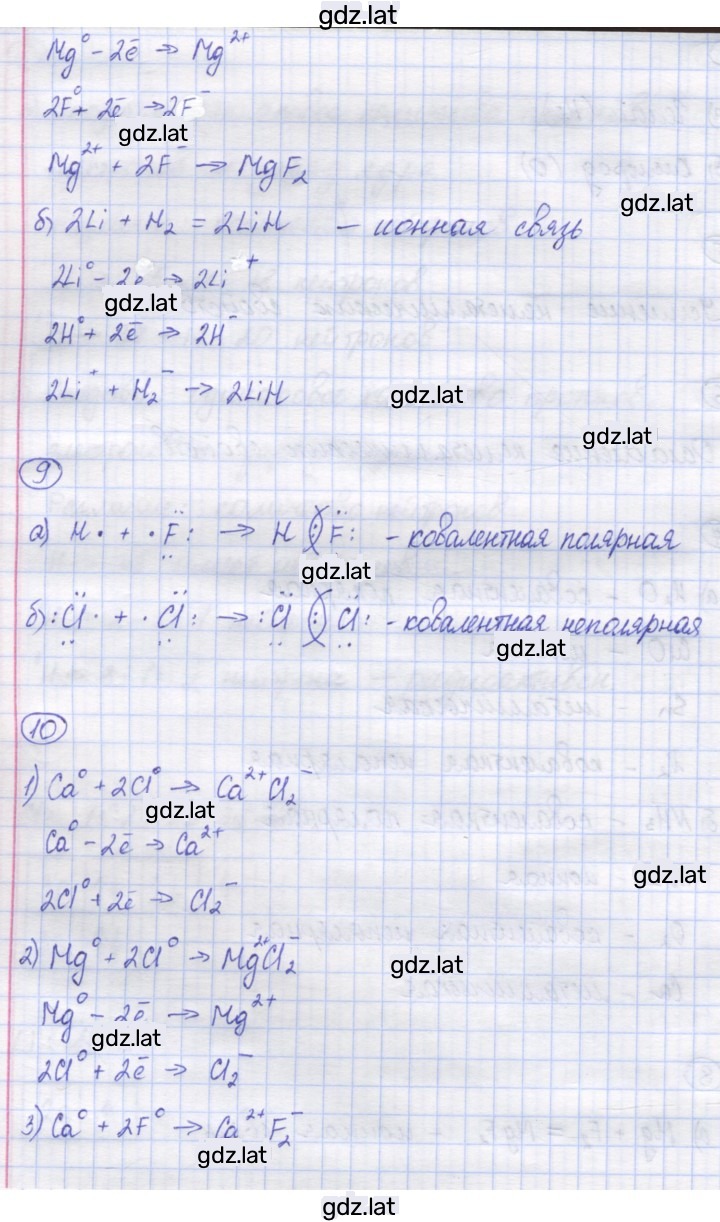 gdz.lat
Mg⁰ - 2ē → Mg²⁺
2F⁰ + 2ē → 2F⁻
gdz.lat
Mg²⁺ + 2F⁻ → MgF₂
gdz.lat
б) 2Li + H₂ = 2LiH - ионная связь
2Li⁰ - 2ē → 2Li⁺
gdz.lat
2H⁰ + 2ē → 2H⁻
2Li⁺ + H₂⁻ → 2LiH
gdz.lat
gdz.lat
9
а) H· + ·F: → H(:)F: - ковалентная полярная
gdz.lat
б) :Cl· + ·Cl: → :Cl(:)Cl: - ковалентная неполярная
gdz.lat
10
1) Ca⁰ + 2Cl⁰ → Ca²⁺Cl₂⁻
gdz.lat
Ca⁰ - 2ē → Ca²⁺
gdz.lat
2Cl⁰ + 2ē → Cl₂⁻
2) Mg⁰ + 2Cl⁰ → Mg²⁺Cl₂⁻
gdz.lat
Mg⁰ - 2ē → Mg²⁺
gdz.lat
2Cl⁰ + 2ē → Cl₂⁻
3) Ca⁰ + 2F⁰ → Ca²⁺F₂⁻
gdz.lat
gdz.lat